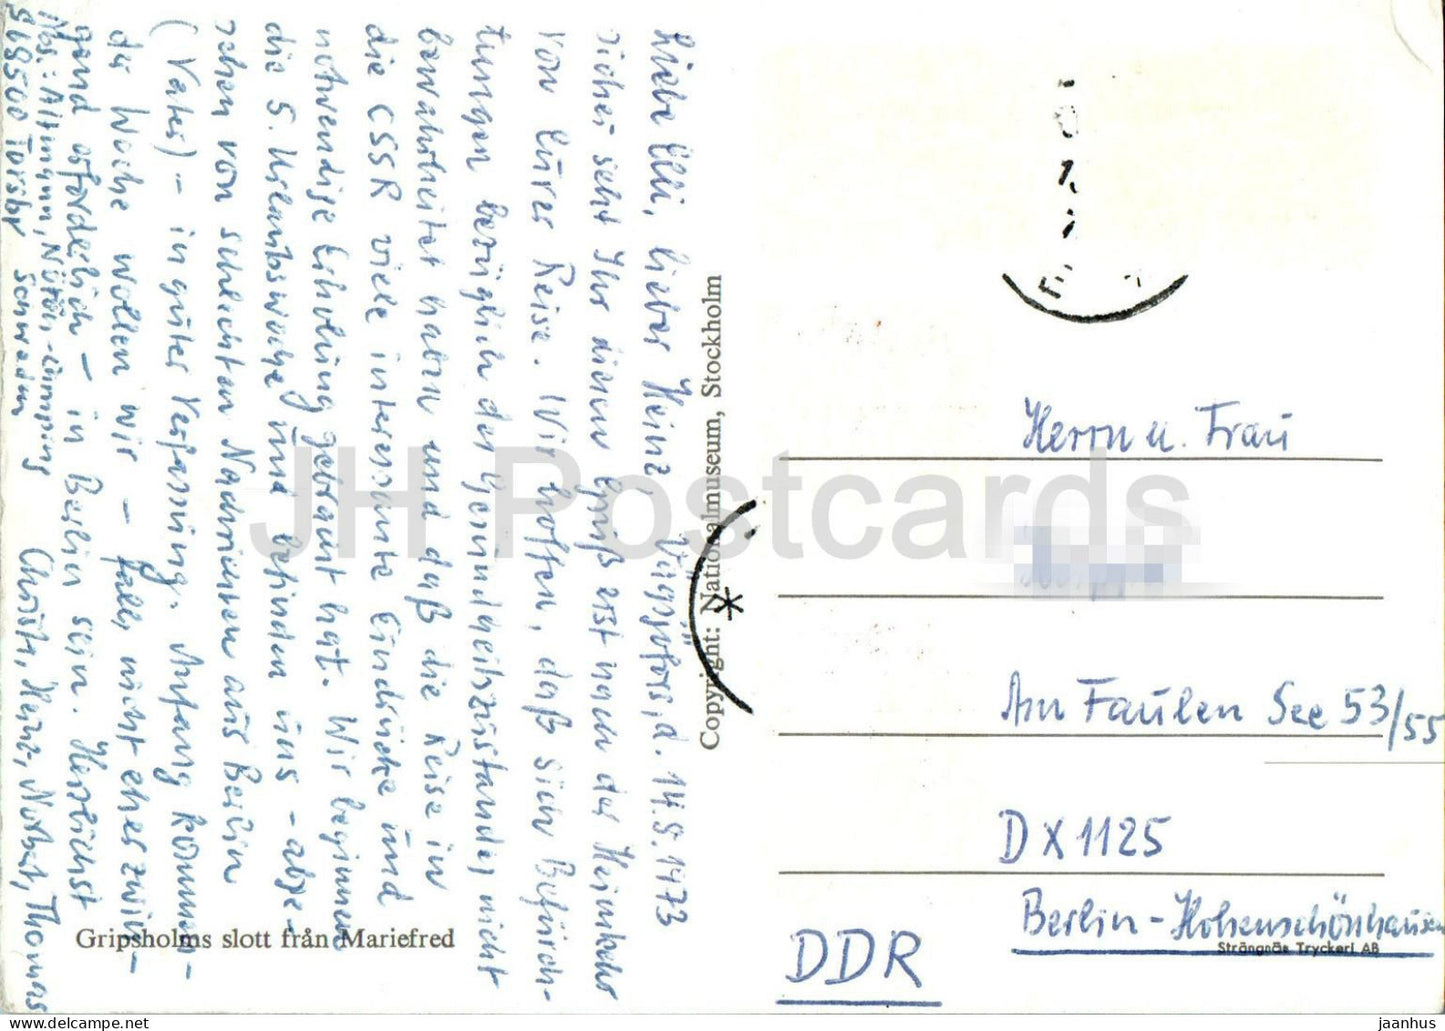 Liebe Elli, lieber Heinz, Vägsjöfors, d. 14.8.1973
sicher seht Ihr diesen Gruß erst nach der Heimkehr
von Eurer Reise. Wir hoffen, daß sich Befürch-
tungen bezüglich des Gesundheitszustandes nicht
bewahrheitet haben und daß die Reise in
die CSSR viele interessante Eindrücke und
notwendige Erholung gebracht hat. Wir beginnen
die 5. Urlaubswoche und befinden uns - abge-
sehen von schlechten Nachrichten aus Berlin
(Vater) - in guter Verfassung. Anfang kommen-
der Woche wollen wir - falls nicht eher zwin-
gend erforderlich - in Berlin sein. Herzlichst
Christa, Heinz, Norbert, Thomas
Abs.: Altmann, -Camping
68500 Torsby Schweden
Gripsholms slott från Mariefred
Copyright: Nationalmuseum, Stockholm
Herrn u. Frau
Am Faulen See 53/55
DX 1125
Berlin-Hohenschönhausen
DDR
Strängnäs Tryckeri AB
JH Postcards
https://jaanhus.com/
jaanhus—.com